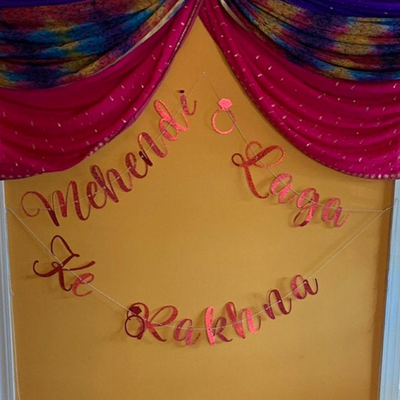 Mehendi Laga
Ke Rakhna